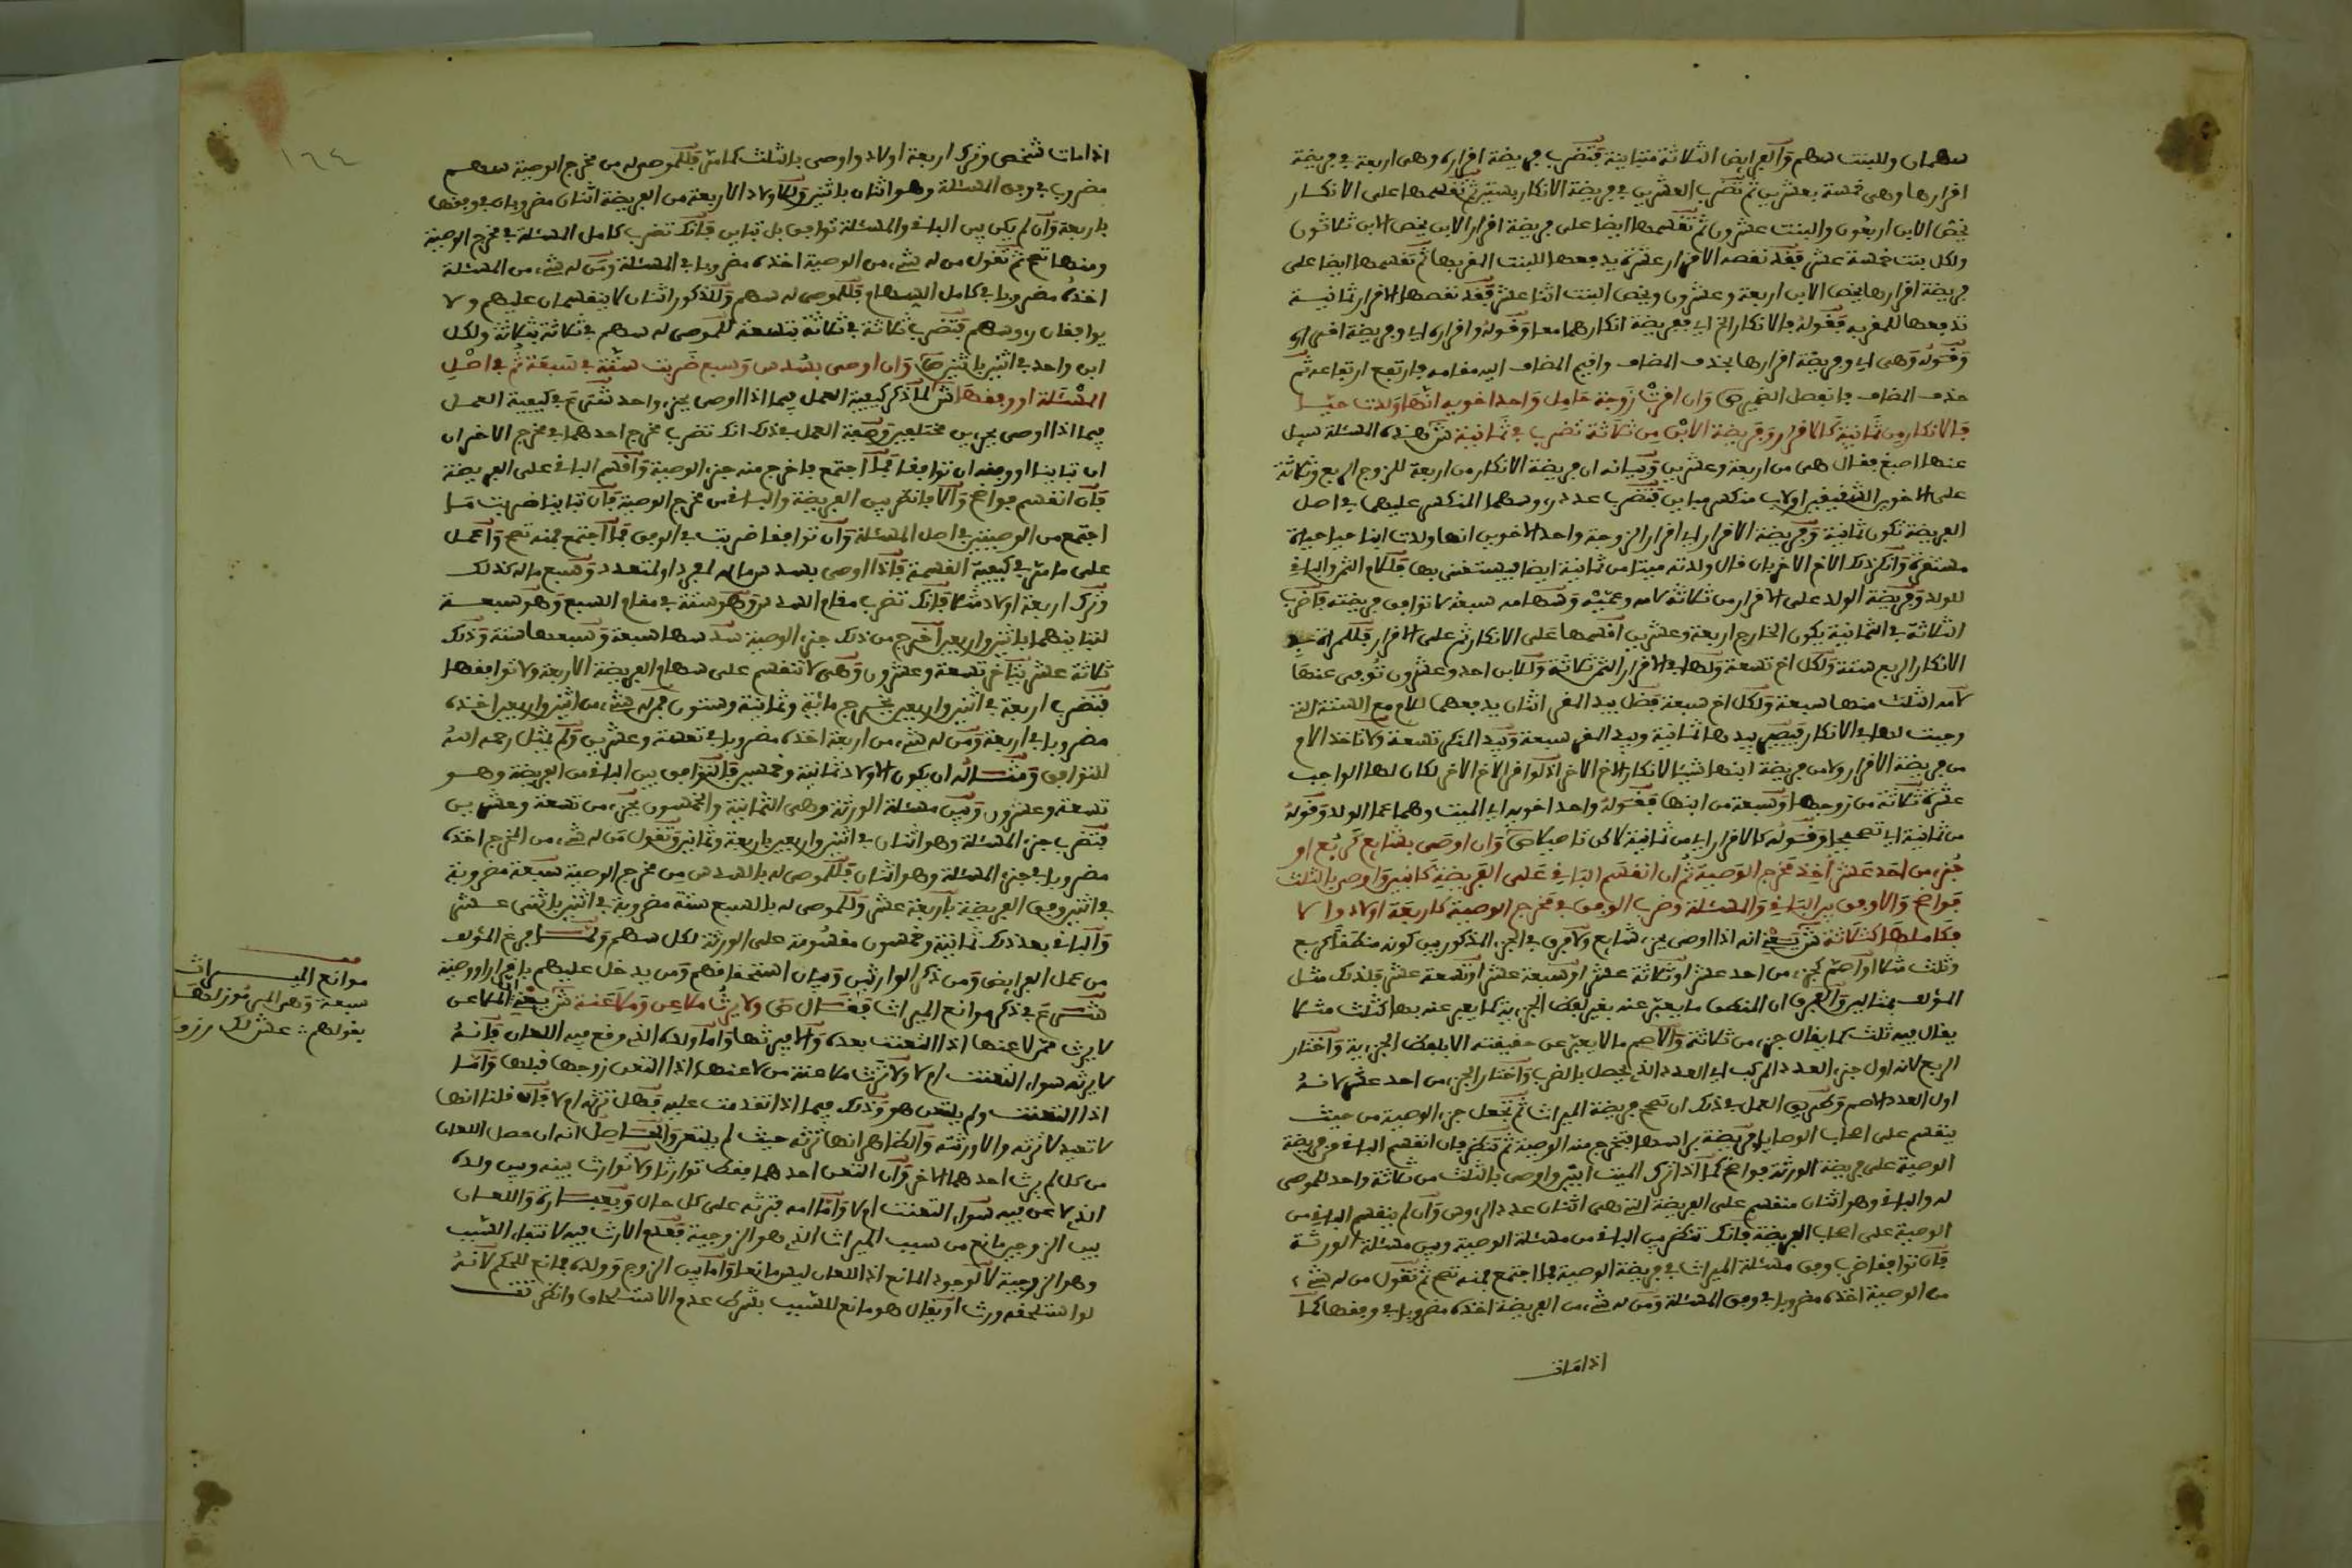 سهمان وللبنت سهم والفرايض الثلاثة متباينة فتضرب فريضة اقراره وهى اربعة في فريضة
اقرارها وهى خمسة بعشرين ثم تضرب العشرين في فريضة الانكار بستين ثم تقسمها على الانكار
يخص الابن اربعون والبنت عشرون ثم تقسمها ايضا على فريضة اقرار الابن يخص الابن ثلاثون
ولكل بنت خمسة عشر فقد نقصه الاقرار عشرة يدفعها للبنت المقر بها ثم تقسمها ايضا على
فريضة اقرارها يخص الابن اربعة وعشرون ويخص البنت اثنا عشر فقد نقصها الاقرار ثمانية
تدفعها للمقر به فقوله بالانكار اي ففريضة انكارهما معا وقوله واقراره اي وفريضة اقراره
وقوله وهى اي وفريضة اقرارها بحذف المضاف واقيم المضاف اليه مقامه فارتفع ارتفاعه ثم
حذف المضاف فانفصل الضمير ص وان اقرت زوجة حامل واحد اخويه انها ولدت حيا
فالانكار من ثمانية كالاقرار وفريضة الابن من ثلاثة تضرب في ثمانية ش هذه المسئلة سيل
عنها اصبغ فقال هى من اربعة وعشرين وبيانه ان فريضة الانكار من اربعة للزوج الربع وثلاثة
على الاخوين الشقيقين اولاب منكسر مباين فتضرب عدد روسهما المنكسر عليهما في اصل
الفريضة تكون ثمانية وفريضة الاقرار اي اقرار الزوجة واحد الاخوين انها ولدت ابنا حيا حياة
مستقرة وانكر ذلك الاخ الاخر بان قال ولدته ميتا من ثمانية ايضا فيستغنى بها فللام الثمن والباقي
للولد وفريضة الولد على الاقرار من ثلاثة لامه وعميه وسهامه سبعة لا توافق فريضته فاضرب
الثلاثة في الثمانية يكون الخارج اربعة وعشرين اقسمها على الانكار ثم على الاقرار فللمراة في
الانكار الربع ستة ولكل اخ تسعة ولها في الاقرار الثمن ثلاثة وللابن احد وعشرون توفى عنها
لامه الثلث منها سبعة ولكل اخ سبعة فضل بيد المقر اثنان يدفعهما للام مع الستة التي
وجبت لها في الانكار فيصير بيدها ثمانية وبيد المقر سبعة وبيد المنكر تسعة ولا تاخذ الام
من فريضة الاقرار ولا من فريضة ابنها شيئا لانكار الاخ الاخر اذ لو اقر الاخ الاخر لكان لها الواجب
عشرة ثلاثة من زوجها وسبعة من ابنها فقوله واحد اخويه اي الميت وهما عما الولد وقوله
من ثمانية اي تصحيحا وقوله كالاقرار اي من ثمانية لاكن تاصيلا ص وان اوصى بشايع كربع او
جزء من احد عشر اخذ مخرج الوصية ثم ان انقسم الباقي على الفريضة كابنين واوصى بالثلث
فواضح والا وفق بين الباقي والمسئلة وضرب الوفق في مخرج الوصية كاربعة اولاد والا
فكاملها كثلاثة ش يعني انه اذا اوصى بجزء شايع ولا فرق في الجزء المذكور بين كونه منطقا كربع
وثلث مثلا او اصم كجزء من احد عشر او ثلاثة عشر او سبعة عشر او تسعة عشر فلذلك مثل
المؤلف بمثالين والفرق ان المنطق ما يعبر عنه بغير لفظ الجزئية كما يعبر عنه بها كثلث مثلا
يقال فيه ثلث كما يقال جزء من ثلاثة والاصم ما لا يعبر عن حقيقته الا بلفظ الجزئية واختار
الربع لانه اول جزء العدد المركب اي العدد الذي يحصل بالضرب واختار الجزء من احد عشر لانه
اول العدد الاصم وطريق العمل في ذلك ان تصحح فريضة الميراث ثم تجعل جزء الوصية من حيث
ينقسم على اصحاب الوصايا فريضة براسها فتخرج منه الوصية ثم تنظر فان انقسم الباقي من فريضة
الوصية على فريضة الورثة فواضح كما اذا ترك الميت ابنين واوصى بالثلث من ثلاثة واحد للموصى
له والباقي وهو اثنان منقسم على الفريضة التي هى اثنان عدد الروس وان لم ينقسم الباقي من
الوصية على اصحاب الفريضة فانك تنظر بين الباقي من مسئلة الوصية وبين مسئلة الورثة
فان توافقا ضرب وفق مسئلة الميراث في فريضة الوصية فما اجتمع فمنه تصح ثم تقول من له شيء
من الوصية اخذه مضروبا في وفق المسئلة ومن له شيء من الفريضة اخذه مضروبا في وفقها كما
اذا مات
١٦٤
اذا مات شخص وترك اربعة اولاد واوصى بالثلث كما مر فللموصى له من مخرج الوصية سهم
مضروب في وفق المسئلة وهو اثنان باثنين وللاولاد الاربعة من الفريضة اثنان مضروبان في وفقها
باربعة وان لم يكن بين الباقي والمسئلة توافق بل تباين فانك تضرب كامل المسئلة في مخرج الوصية
ومنها تصح ثم تقول من له شيء من الوصية اخذه مضروبا في المسئلة ومن له شيء من المسئلة
اخذه مضروبا في كامل السهام فللموصى له سهم وللذكور اثنان لا ينقسمان عليهم ولا
يوافقان روسهم فتضرب ثلاثة في ثلاثة بتسعة للموصى له سهم في ثلاثة بثلاثة ولكل
ابن واحد في اثنين باثنين ص وان اوصى بسدس وسبع ضربت ستة في سبعة ثم في اصل
المسئلة او وفقها ش لما ذكر كيفية العمل فيما اذا اوصى بجزء واحد شرع في كيفية العمل
فيما اذا اوصى بجزءين مختلفين وصفة العمل في ذلك انك تضرب مخرج احدهما في مخرج الاخر ان
ان تباينا او وفقه ان توافقا فما اجتمع فاخرج منه جزء الوصية واقسم الباقي على الفريضة
فان انقسم فواضح والا فانظر بين الفريضة والباقي من مخرج الوصية فان تباينا ضربت ما
اجتمع من الوصيتين في اصل المسئلة وان توافقا ضربت في الوفق فما اجتمع فمنه تصح واعمل
على ما مر في كيفية القسمة فاذا اوصى بسدس ماله لمفرد او لمتعدد وسبع ماله كذلك
وترك اربعة اولاد مثلا فانك تضرب مقام السدس وهو ستة في مقام السبع وهو سبعة
لتباينهما باثنين واربعين اخرج من ذلك جزء الوصية سدسها سبعة وسبعها ستة وذلك
ثلاثة عشر يتاخر تسعة وعشرون وهى لا تنقسم على سهام الفريضة الاربعة ولا توافقها
فتضرب اربعة في اثنين واربعين يخرج مائة وثمانية وستون فمن له شيء من اثنين واربعين اخذه
مضروبا في اربعة ومن له شيء من اربعة اخذه مضروبا في تسعة وعشرين ولم يمثل رحمه الله
للتوافق ومثاله ان يكون الاولاد ثمانية وخمسين فالتوافق بين الباقي من الفريضة وهو
تسعة وعشرون وبين مسئلة الورثة وهى الثمانية والخمسون بجزء من تسعة وعشرين
فتضرب جزء المسئلة وهو اثنان في اثنين واربعين باربعة وثمانين وتقول من له شيء من المخرج اخذه
مضروبا في جزء المسئلة وهو اثنان فللموصى له بالسدس من مخرج الوصية سبعة مضروبة
في اثنين وفق الفريضة باربعة عشر وللموصى له بالسبع ستة مضروبة في اثنين باثنى عشر
والباقي بعد ذلك ثمانية وخمسون مقسومة على الورثة لكل سهم ولما فرغ المؤلف
من عمل الفرايض ومن ذكر الوارثين وبيان استحقاقهم ومن يدخل عليهم باقرار او وصية
شرع في ذكر موانع الميراث فقال ص ولا يرث ملاعن وملاعنة ش يعني ان الملاعن
لا يرث ممن لاعنها اذا التعنت بعده والا فيرثها واما ولده الذي وقع فيه اللعان فانه
لا يرثه سواء التعنت ام لا ولا ترث ملاعنة من لاعنها اذا التعن زوجها قبلها واما
اذا التعنت ولم يلتعن هو وذلك فيما اذا تقدمت عليه فهل ترثه ام لا فان قلنا انها
لا تعيد لا ترثه والا ورثته والظاهر انها ترثه حيث لم يلتعن والحاصل انه ان حصل اللعان
من كل لم يرث احدهما الاخر وان التعن احدهما فقط توارثا ولا توارث بينه وبين ولده
الذي لاعن فيه سواء التعنت ام لا واما امه فترثه على كل حال وبعبارة واللعان
بين الزوجين مانع من سبب الميراث الذي هو الزوجية فعدم الارث فيه لانتفاء السبب
وهو الزوجية لا لوجود المانع اذ اللعان ليس مانعا واما بين الزوج وولده فمانع للحكم لانه
لو استلحقه ورث او يقال هو مانع للسبب بشرط عدم الاستلحاق وانظر تت
موانع الميراث
سبعة وهى التي رمز لها
بقولهم عش لك رزق